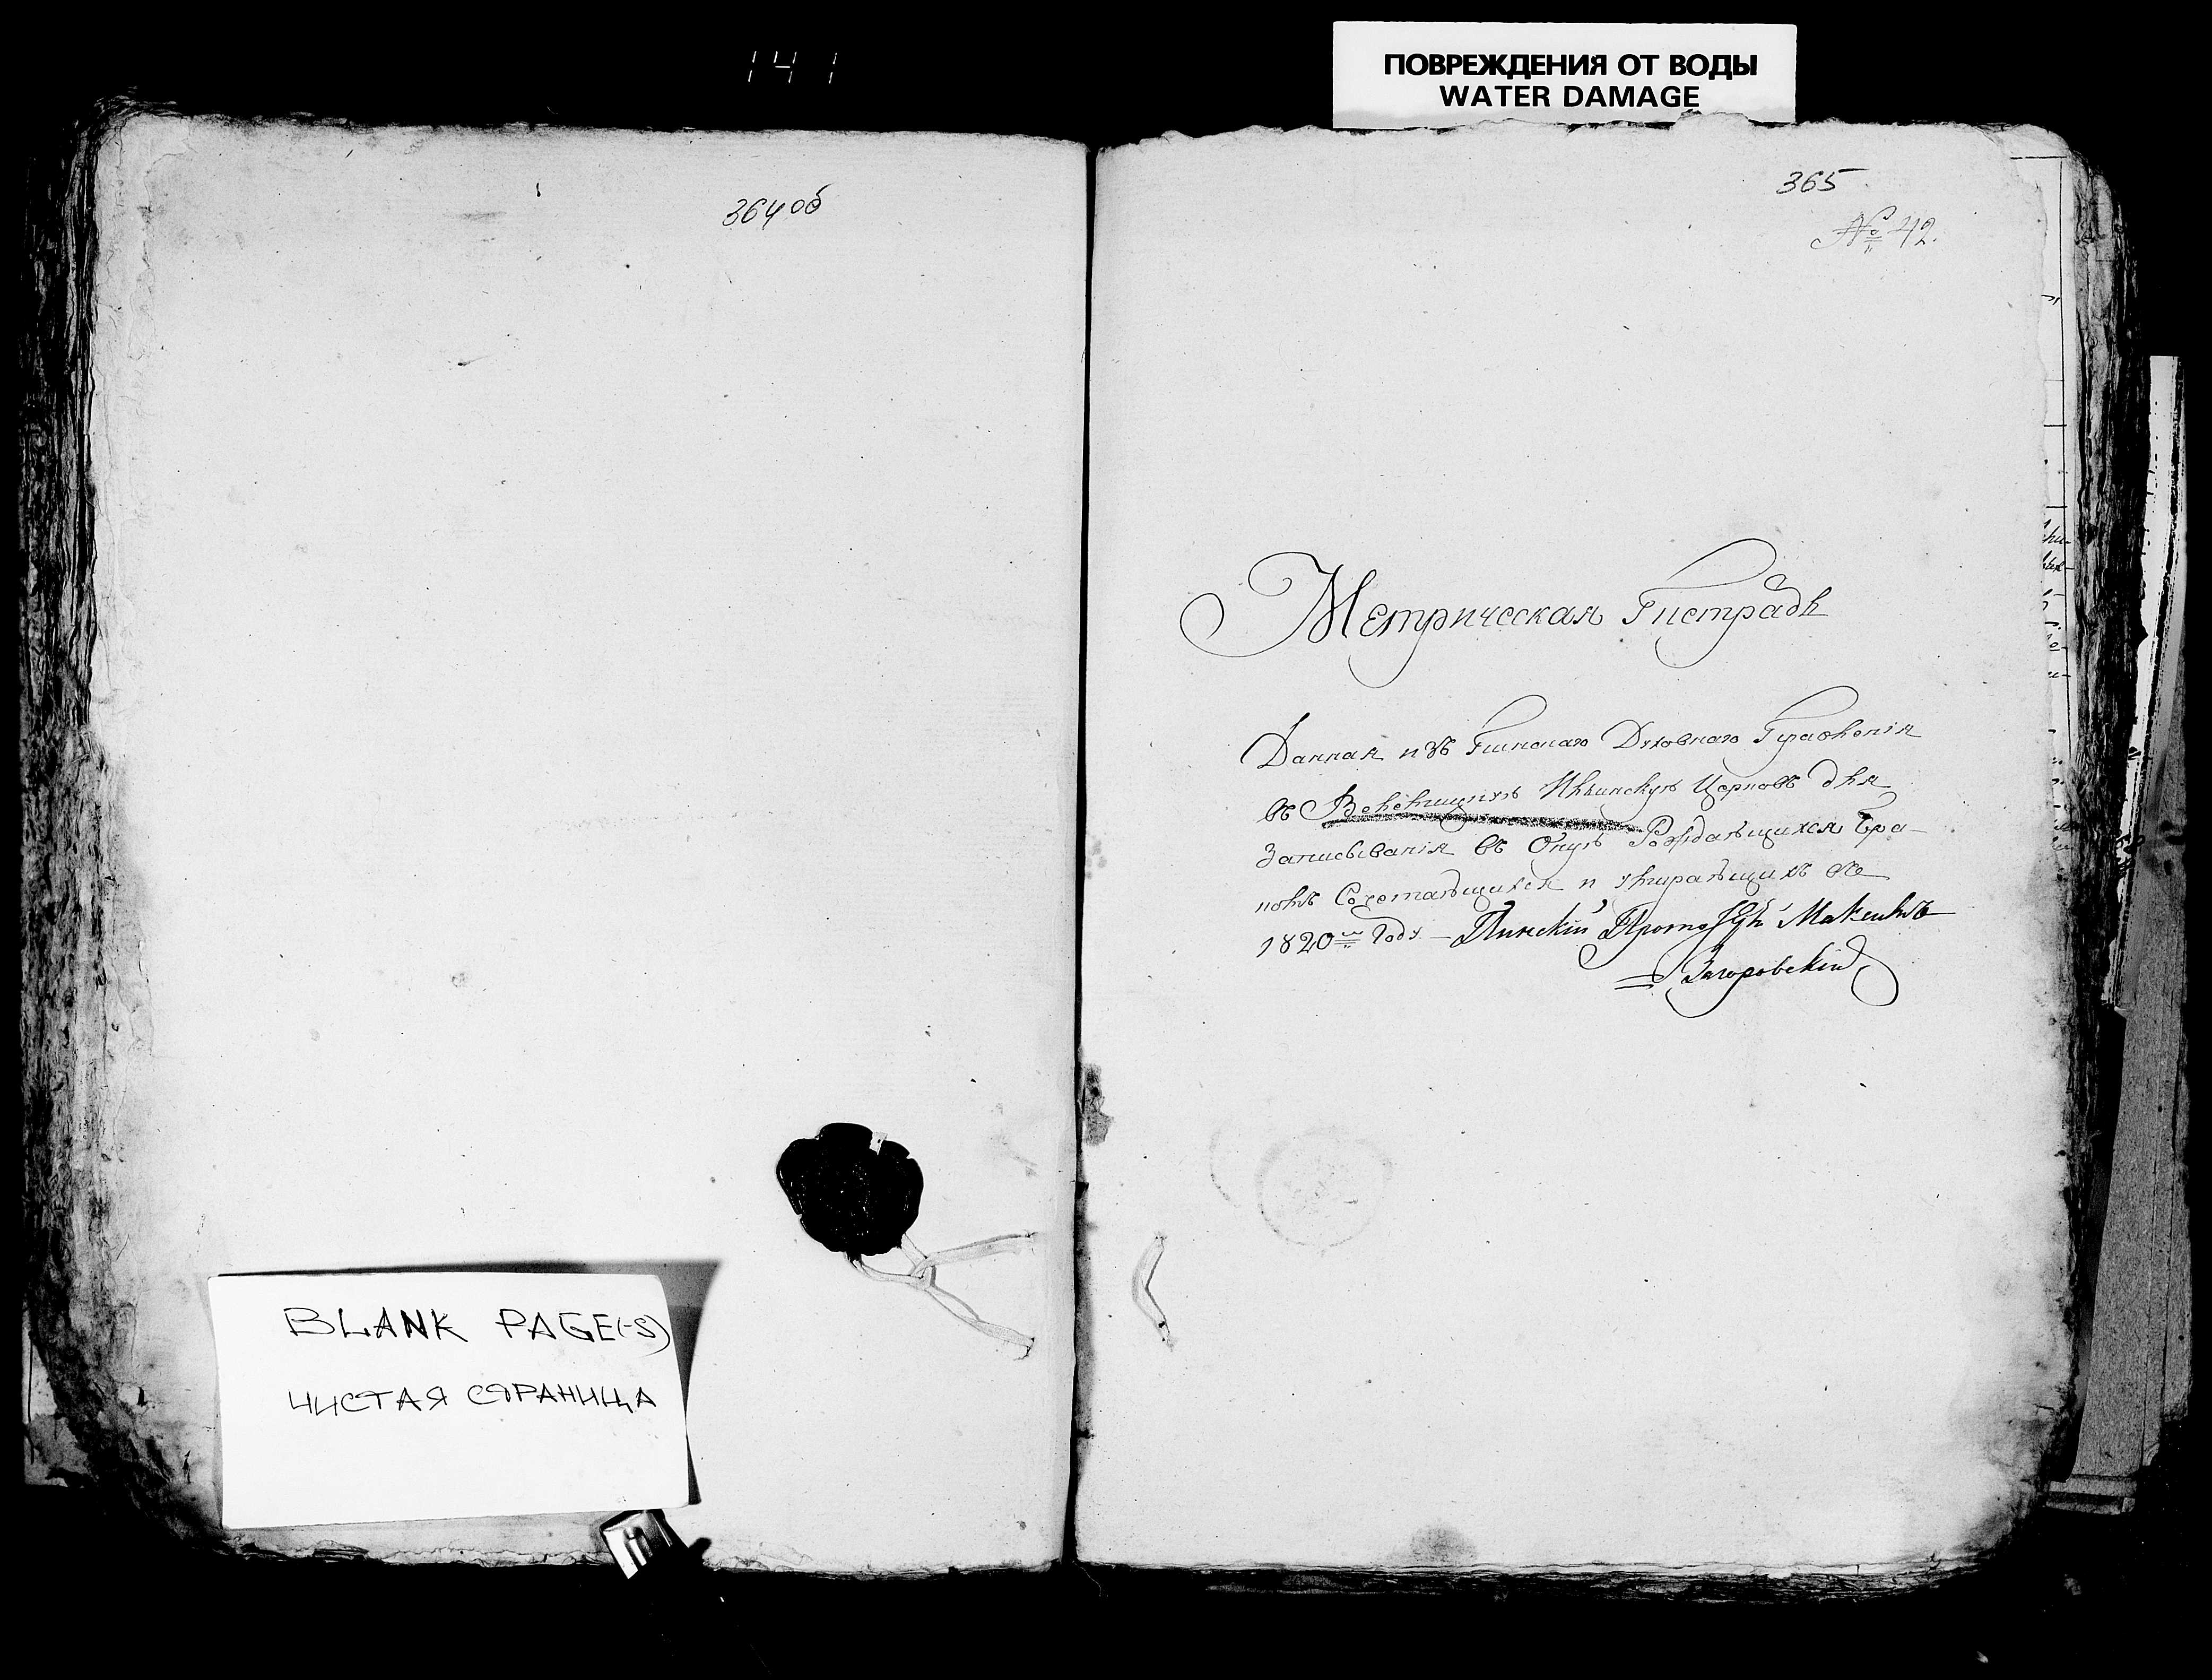 141
ПОВРЕЖДЕНИЯ ОТ ВОДЫ
WATER DAMAGE
364 об
BLANK PAGE(-S)
ЧИСТАЯ СТРАНИЦА
365
№ 42.
Метрическая Тистрадь
Данная изъ Пинскаго Духовнаго Правленія
въ Ильинскую Церковь для
Записыванія въ Оную Рождающихся Бра-
комъ Сочетающихся и умирающихъ въ
1820м Году – Пинскій Максимъ
Загоровскій